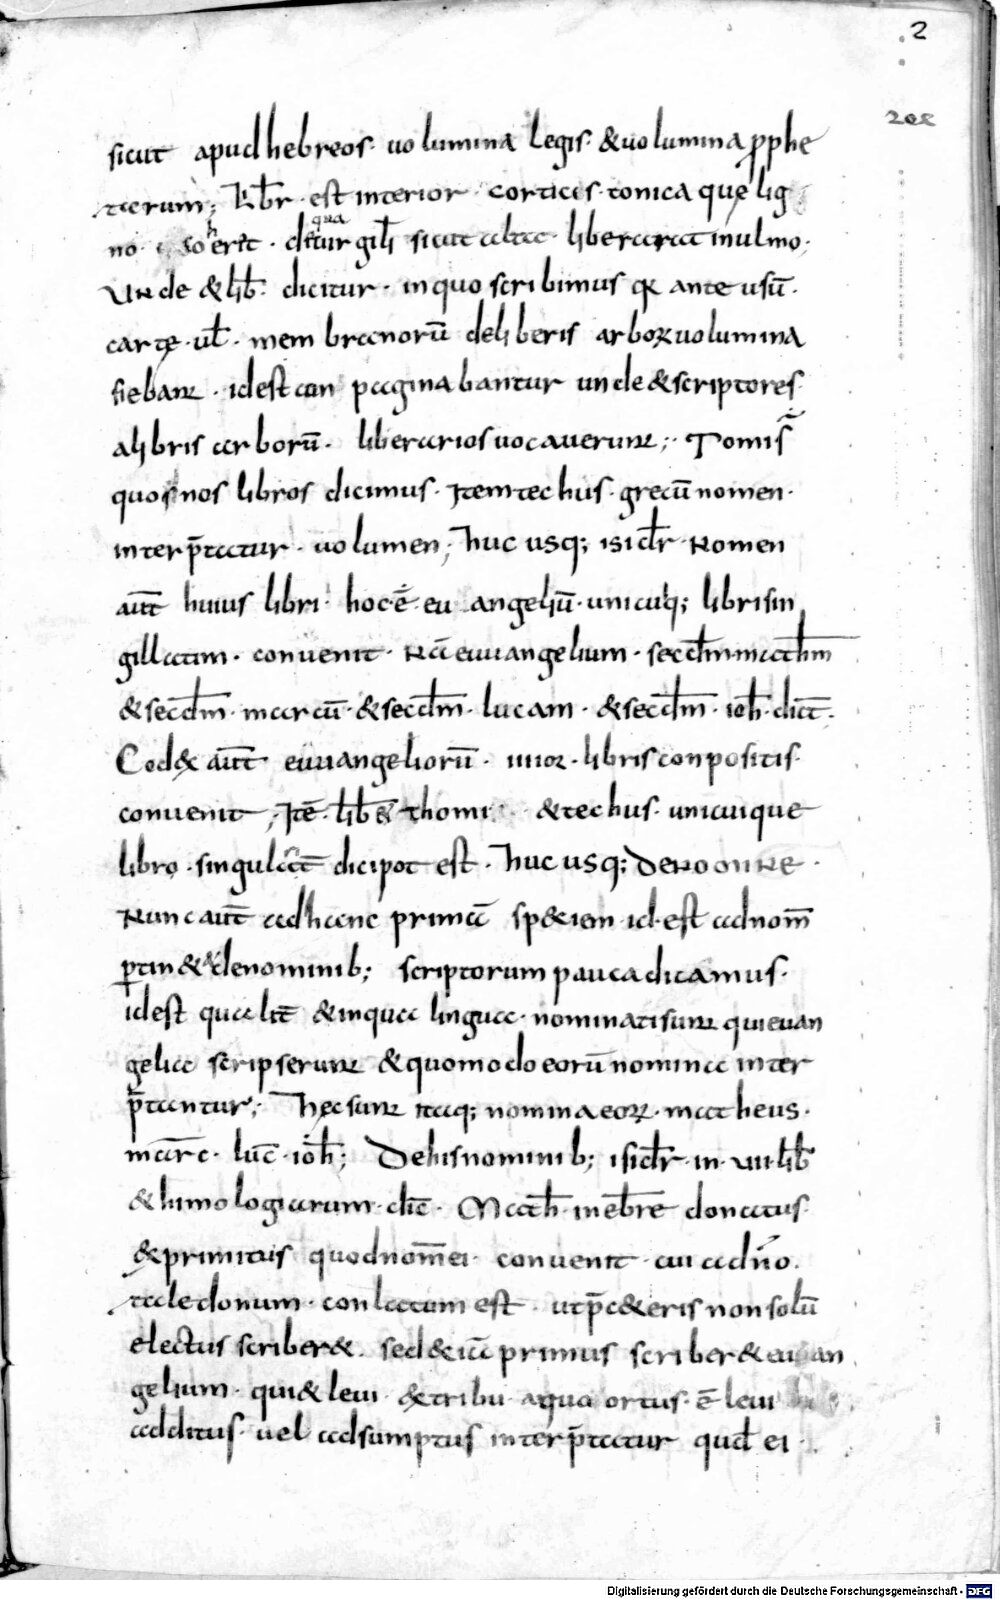 2
sicut apud hebreos · uolumina legis · & uolumina pphe
tarum; Libr · est interior · cortices · tonica quę lig
no · coherit · dr̄ gili sicut alta liber aratinulmo;
Unde & lib̄ · dicitur · inquo scribimus qr̄ ante usū ·
cartę · ul̄ · membranorū deliberis arborum uolumina
fiebant · idest con paginabantur unde & scriptores
alibris arborū · liberarios uocauerunt; Tomis
quos nos libros dicimus · Item techus · grecū nomen ·
interp̄tatur · uolumen; huc usq; isidr̄ Nomen
aūt huius libri · hoc · ē · euangeliū · unicuiq; libri sin
gillatim · conuenit · Nā euuangelium · secdm̄ · math̄m
& secdm̄ · marcū · & secdm̄ · lucam · & secdm̄ · ioh̄ · dict̄ ·
Cod& aūt euuangeliorū · iiiior · libris conpositis ·
conuenit; Itē · lib̄ & thomi & techus · unicuique
libro · singulat̄ dicipot est · huc usq; DENOMINE ·
Nunc aūt ad hanc primā sp&iem · id · est adnom̄
ptin& & denominib; scriptorum pauca dicamus ·
idest qualit̄ & inqua lingua · nominati sunt qui euan
gelia scripserunt & quomodo eorū nomina inter
p̄tantur; hęc sunt itaq; nomina eorum · matheus ·
marc̄ · luc̄ · ioh̄; Dehis nominib; isidr̄ · in · uii · lib̄
& himologiarum · dic̄ · Math̄ · inebrē donatus
& primitus quod nom̄ ei · conuenit · cui ad n̄o ·
tale donum · conlatum est · utp̄c&eris non solū
electus scriber& · sed & iā primus scriber& euuan
gelium · qui & leui · & tribu aqua ortus · ē leui
additus · uel adsumptus interp̄tatur quod̄ ei
Digitalisierung gefördert durch die Deutsche Forschungsgemeinschaft - DFG